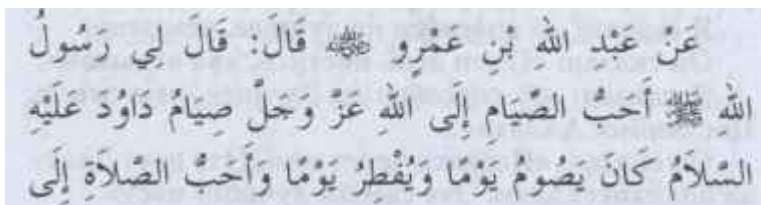 عَنْ عَبْدِ اللهِ بْنِ عَمْرٍو ﷺ قَالَ: قَالَ لِي رَسُولُ
الله ﷺ أَحَبُّ الصِّيَامِ إِلَى اللهِ عَزَّ وَجَلَّ صِيَامُ دَاوُدَ عَلَيْهِ
السَّلاَمُ كَانَ يَصُومُ يَوْمًا وَيُفْطِرُ يَوْمًا وَأَحَبُّ الصَّلاَةِ إِلَى